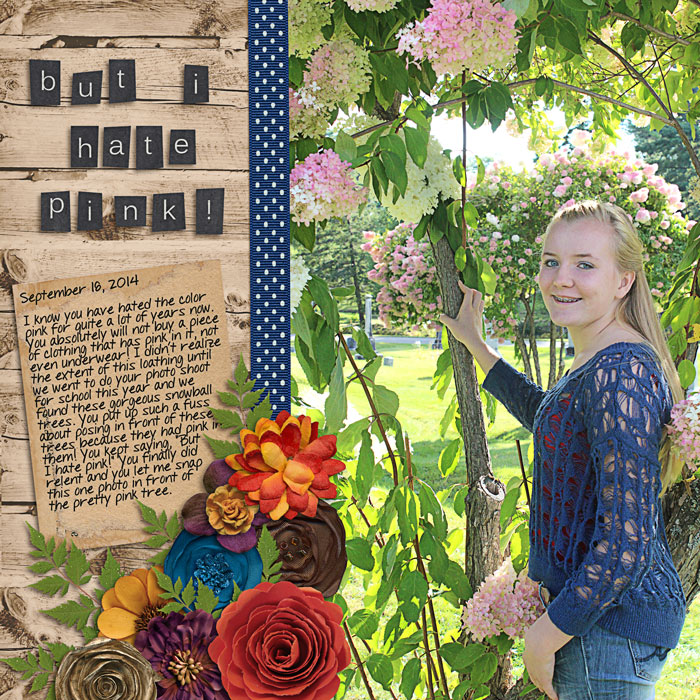 but i
hate
pink!
September 18, 2014
I know you have hated the color
pink for quite a lot of years now.
You absolutely will not buy a piece
of clothing that has pink in it, not
even underwear! I didn't realize
the extent of this loathing until
we went to do your photo shoot
for school this year and we
found these gorgeous snowball
trees. You put up such a fuss
about posing in front of these
trees because they had pink in
them! You kept saying, "But
I hate pink!" You finally did
relent and you let me snap
this one photo in front of
the pretty pink tree.